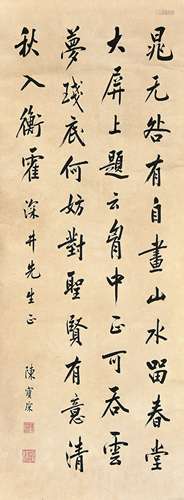 晁无咎有自畫山水留春堂
大屏上題云胷中正可吞雲
夢琖底何妨對聖賢有意清
秋入衡霍 深井先生正
陳寶琛